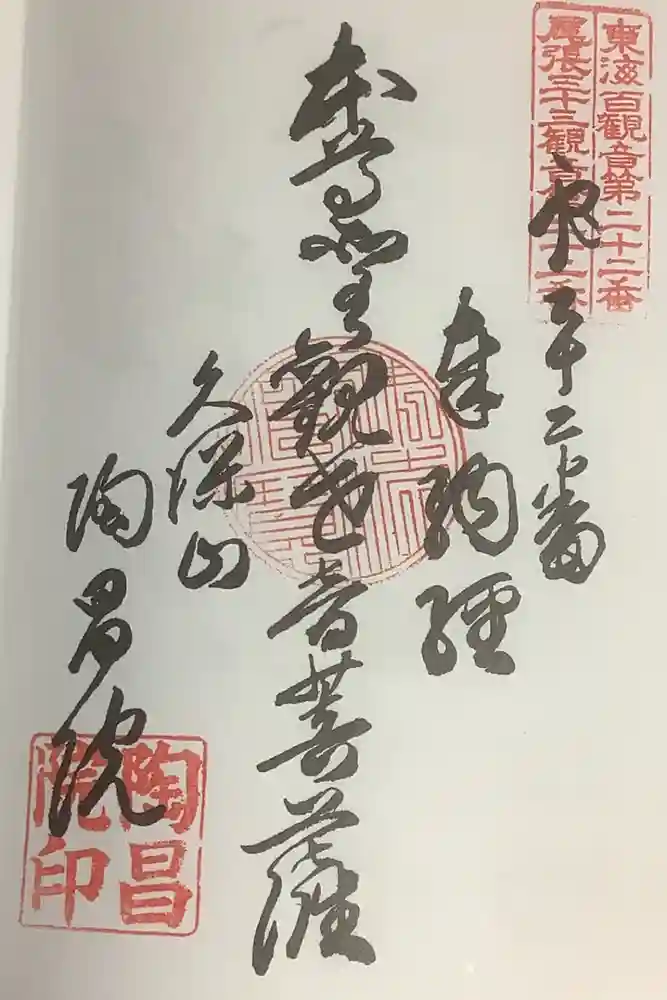 東海百観音第二十二番
尾張三十三観音第二十二番
二十二番
奉納經
本尊聖觀世音菩薩
久保山
陶昌院
陶昌院印